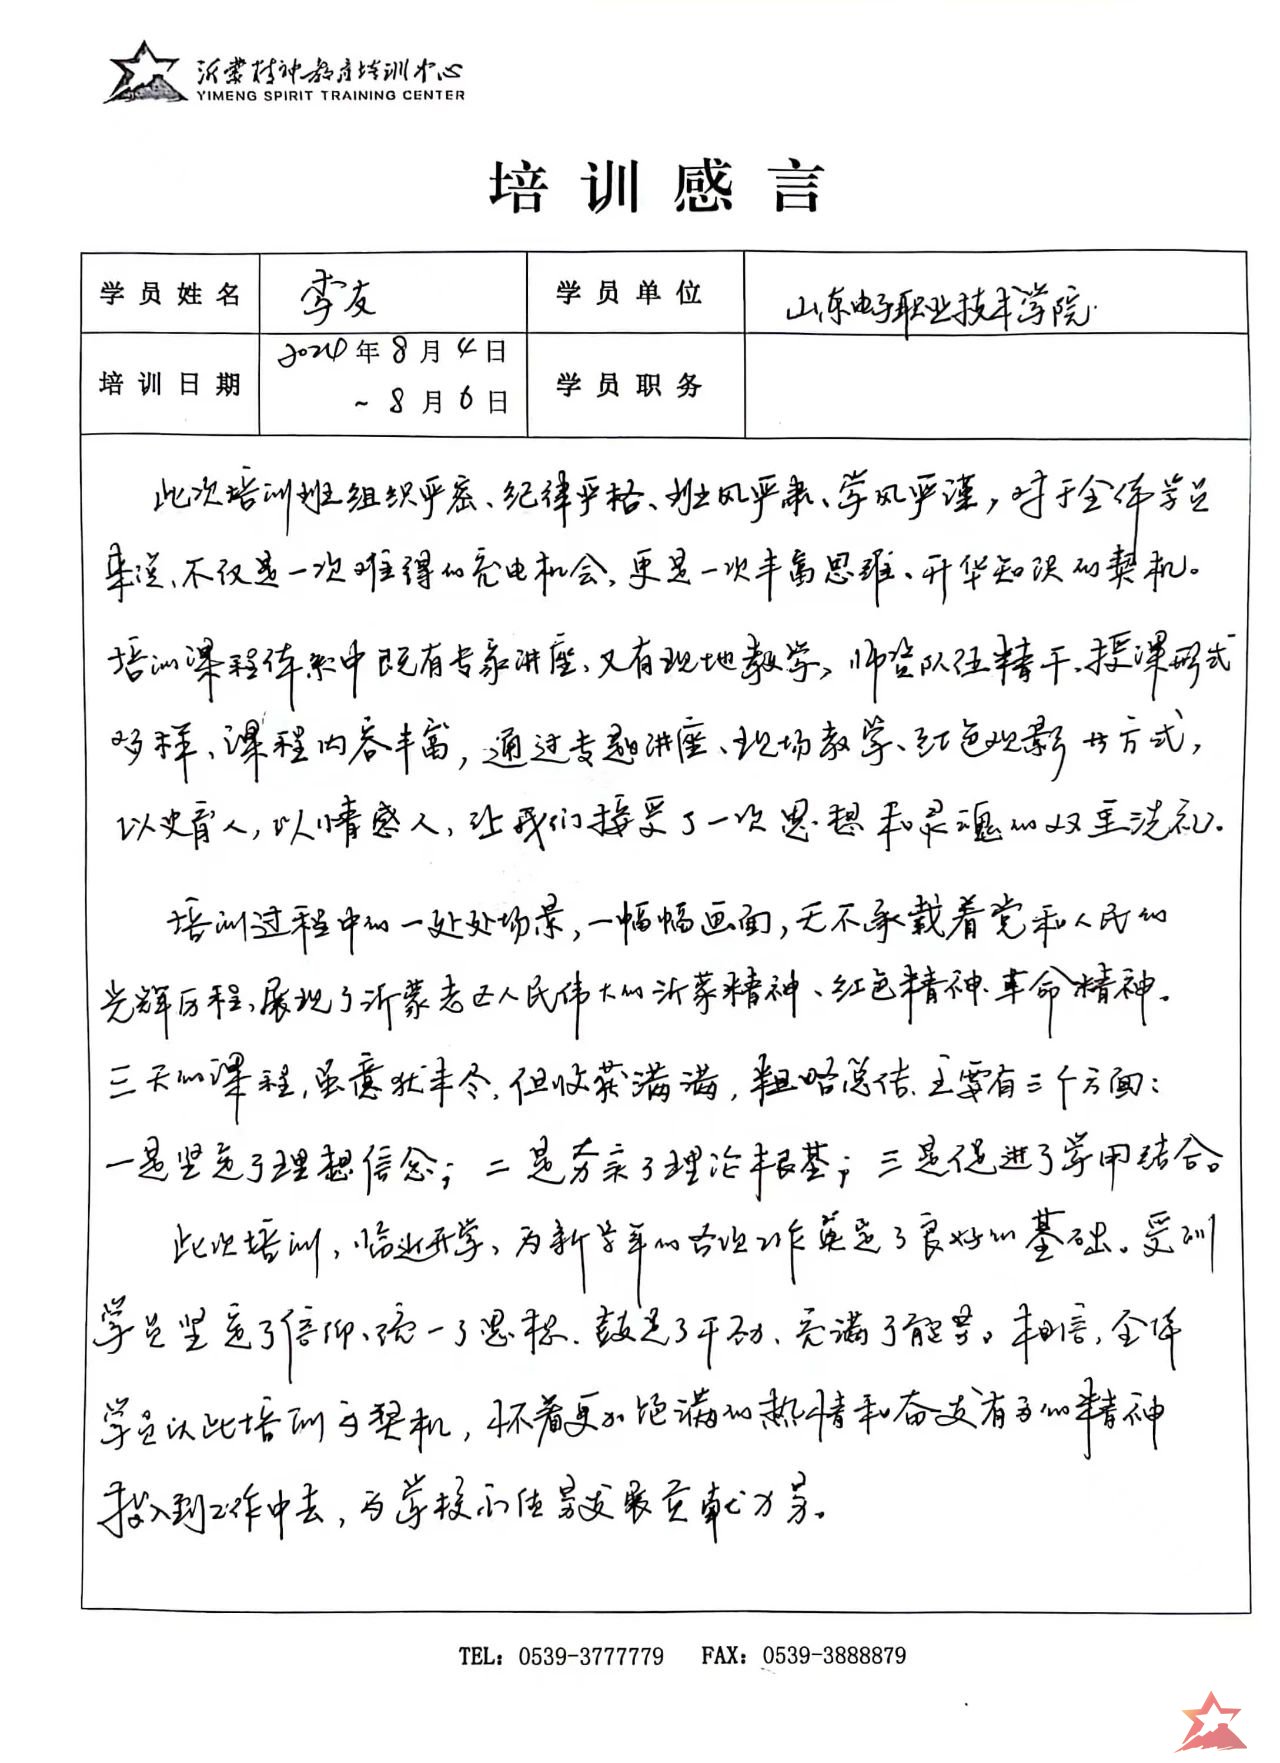 沂蒙精神教育培训中心
YIMENG SPIRIT TRAINING CENTER
培训感言
学员姓名 李友 学员单位 山东电子职业技术学院
培训日期 2024年8月4日
~8月6日 学员职务
此次培训班组织严密、纪律严格、班风严肃、学风严谨，对于全体学员
来说，不仅是一次难得的充电机会，更是一次丰富思维、升华知识的契机。
培训课程体系中既有专家讲座，又有现地教学，师资队伍精干，授课形式
多样、课程内容丰富，通过专题讲座、现场教学、红色观影等方式，
以史育人，以情感人，让我们接受了一次思想和灵魂的双重洗礼。
培训过程中的一处处场景，一幅幅画面，无不承载着党和人民的
光辉历程，展现了沂蒙老区人民伟大的沂蒙精神、红色精神、革命精神。
三天的课程，虽意犹未尽，但收获满满，粗略总结，主要有三个方面：
一是坚定了理想信念；二是夯实了理论根基；三是促进了学用结合。
此次培训，临近开学，为新学年的各项工作奠定了良好的基础。受训
学员坚定了信仰、统一了思想、鼓足了干劲、充满了能量。相信，全体
学员以此培训为契机，怀着更加饱满的热情和奋发有为的精神
投入到工作中去，为学校的佳景发展贡献力量。
TEL：0539-3777779 FAX：0539-3888879